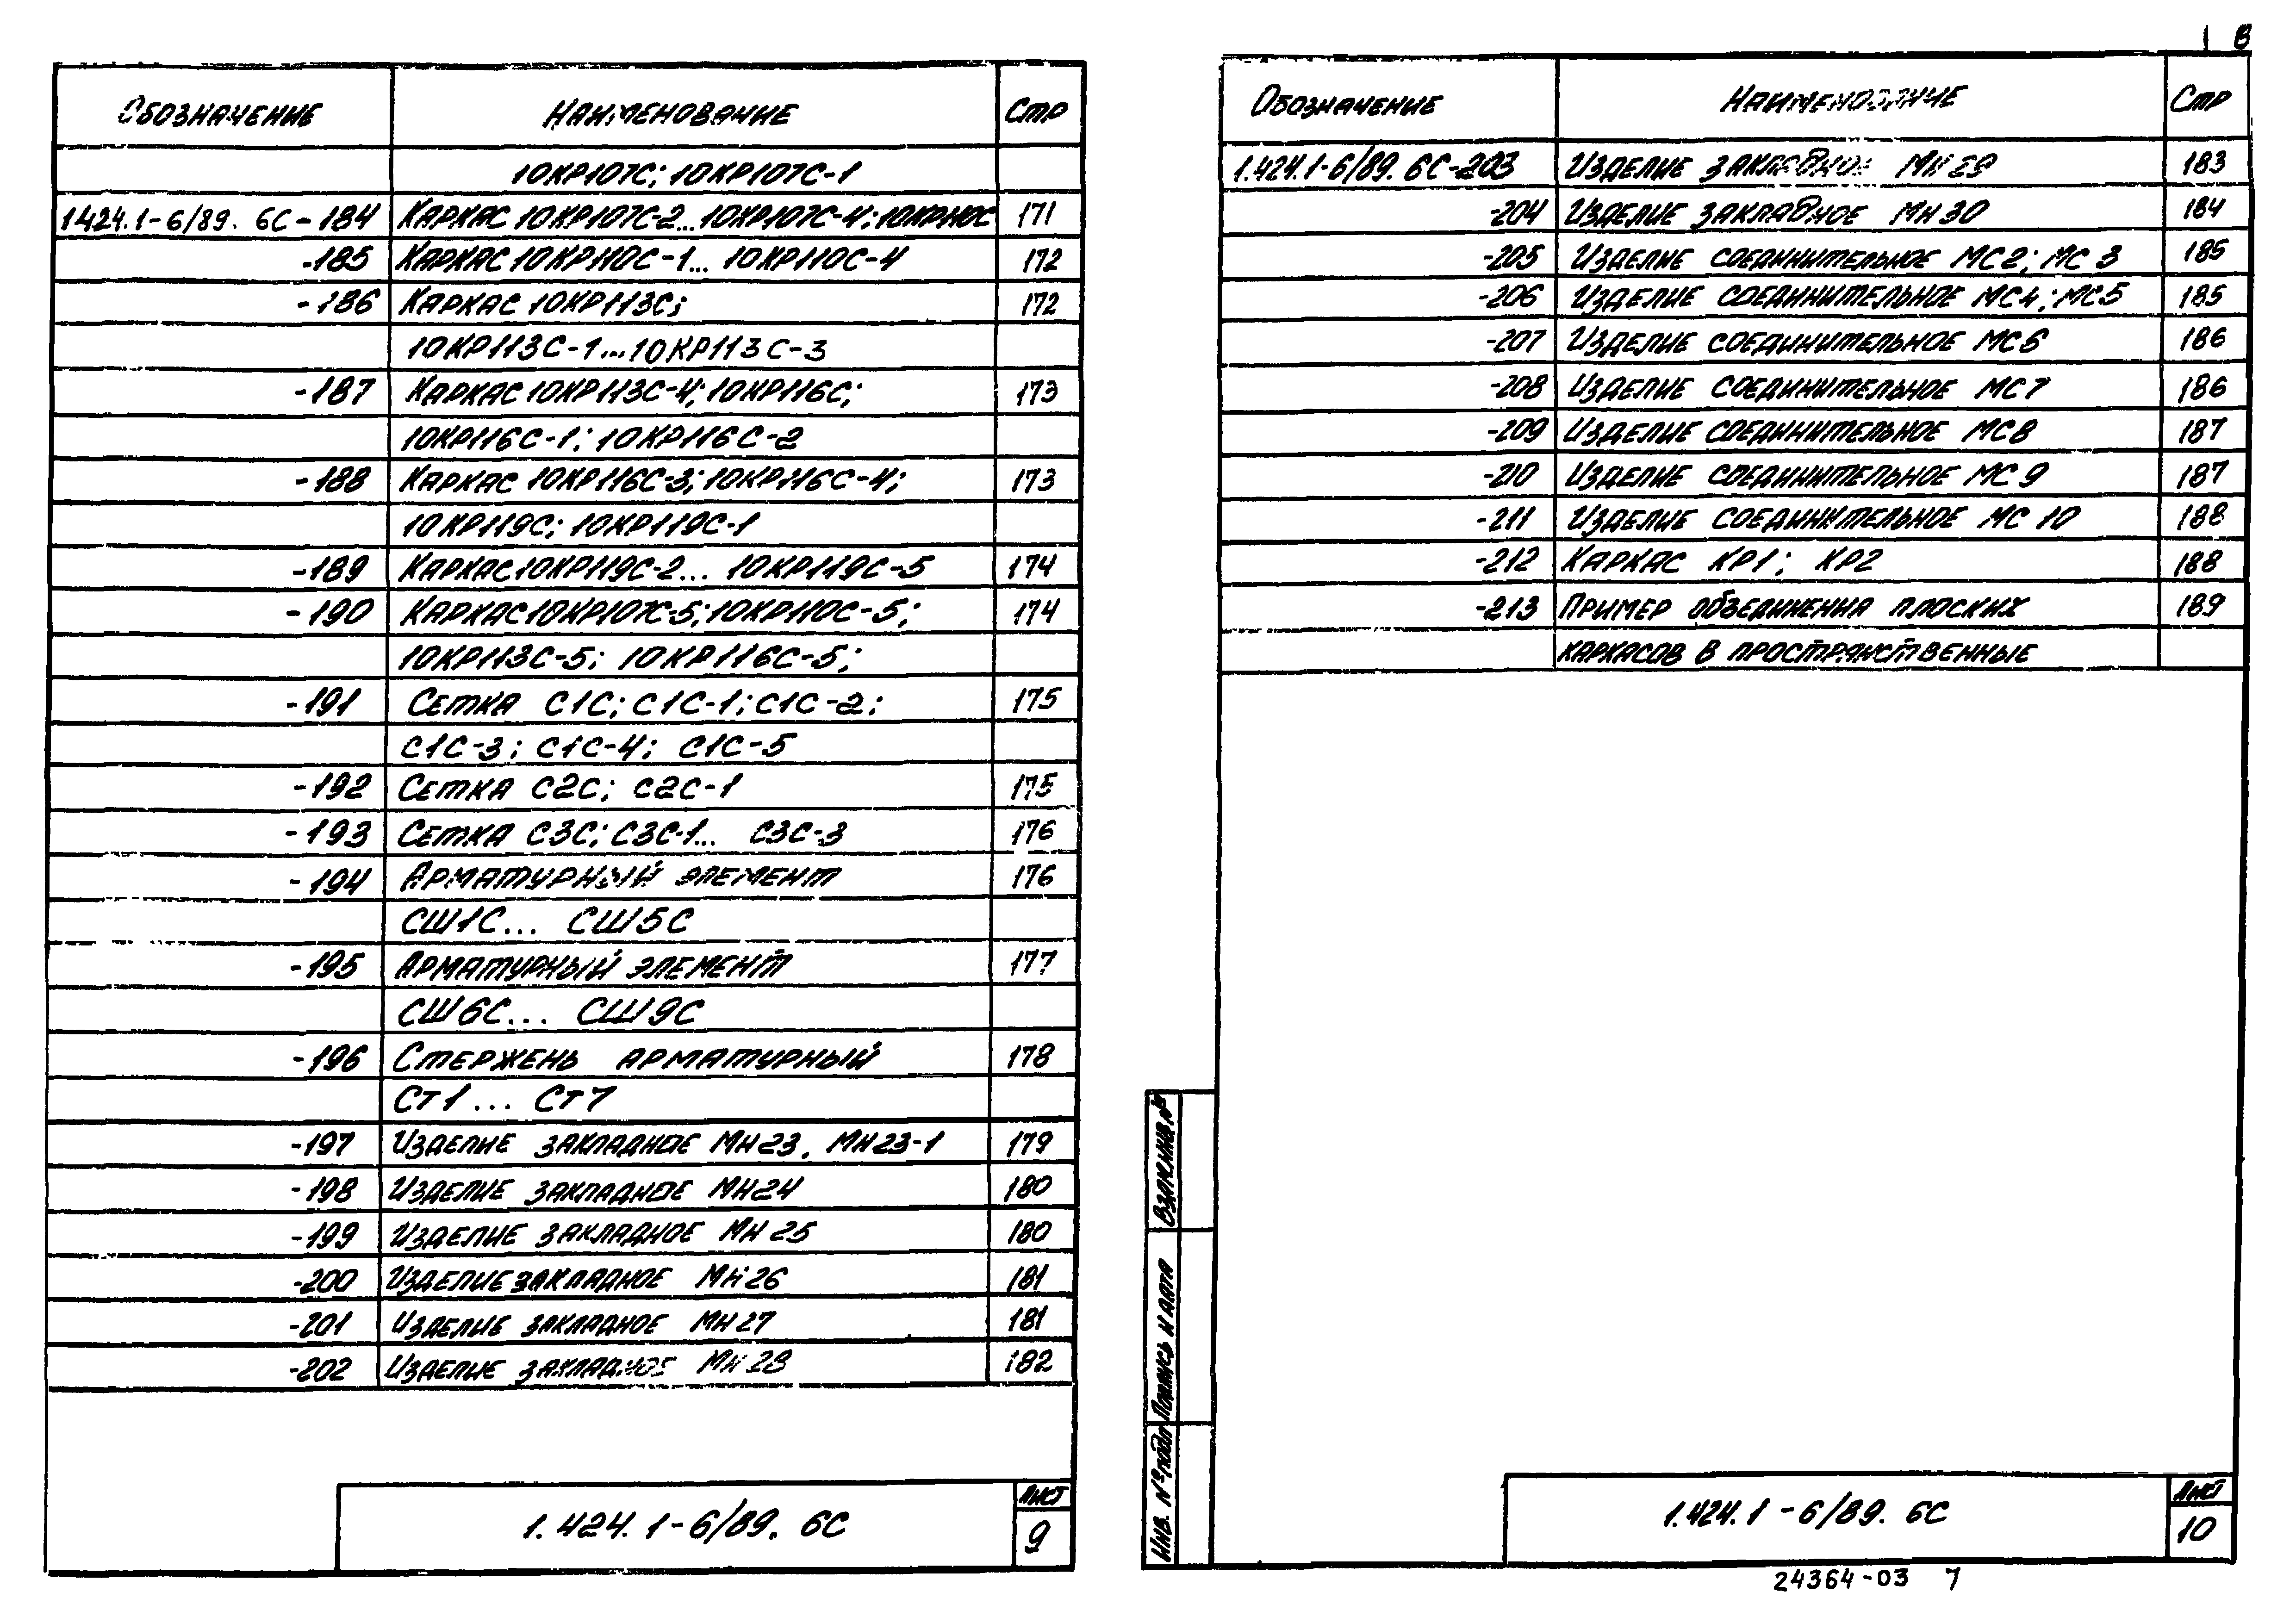 8
Обозначение Наименование Стр
10КР107С; 10КР107С-1
1.424.1-6/89. 6С-184 Каркас 10КР107С-2...10КР107С-4; 10КР110С 171
-185 Каркас 10КР110С-1... 10КР110С-4 172
-186 Каркас 10КР113С; 172
10КР113С-1...10КР113С-3
-187 Каркас 10КР113С-4; 10КР116С; 173
10КР116С-1; 10КР116С-2
-188 Каркас 10КР116С-3; 10КР116С-4; 173
10КР119С; 10КР119С-1
-189 Каркас 10КР119С-2... 10КР119С-5 174
-190 Каркас 10КР107С-5; 10КР110С-5; 174
10КР113С-5; 10КР116С-5;
-191 Сетка С1С; С1С-1; С1С-2; 175
С1С-3; С1С-4; С1С-5
-192 Сетка С2С; С2С-1 175
-193 Сетка С3С; С3С-1... С3С-3 176
-194 Арматурный элемент 176
СШ1С... СШ5С
-195 Арматурный элемент 177
СШ6С... СШ9С
-196 Стержень арматурный 178
Ст1... Ст7
-197 Изделие закладное МН23, МН23-1 179
-198 Изделие закладное МН24 180
-199 Изделие закладное МН25 180
-200 Изделие закладное МН26 181
-201 Изделие закладное МН27 181
-202 Изделие закладное МН28 182
1.424.1-6/89. 6С
Лист
9
Обозначение Наименование Стр
1.424.1-6/89. 6С-203 Изделие закладное МН29 183
-204 Изделие закладное МН30 184
-205 Изделие соединительное МС2; МС3 185
-206 Изделие соединительное МС4; МС5 185
-207 Изделие соединительное МС6 186
-208 Изделие соединительное МС7 186
-209 Изделие соединительное МС8 187
-210 Изделие соединительное МС9 187
-211 Изделие соединительное МС10 188
-212 Каркас КР1; КР2 188
-213 Пример объединения плоских 189
каркасов в пространственные
Взам.инв.№
Подпись и дата
Инв. № подл
1.424.1-6/89. 6С
Лист
10
24364-03 7